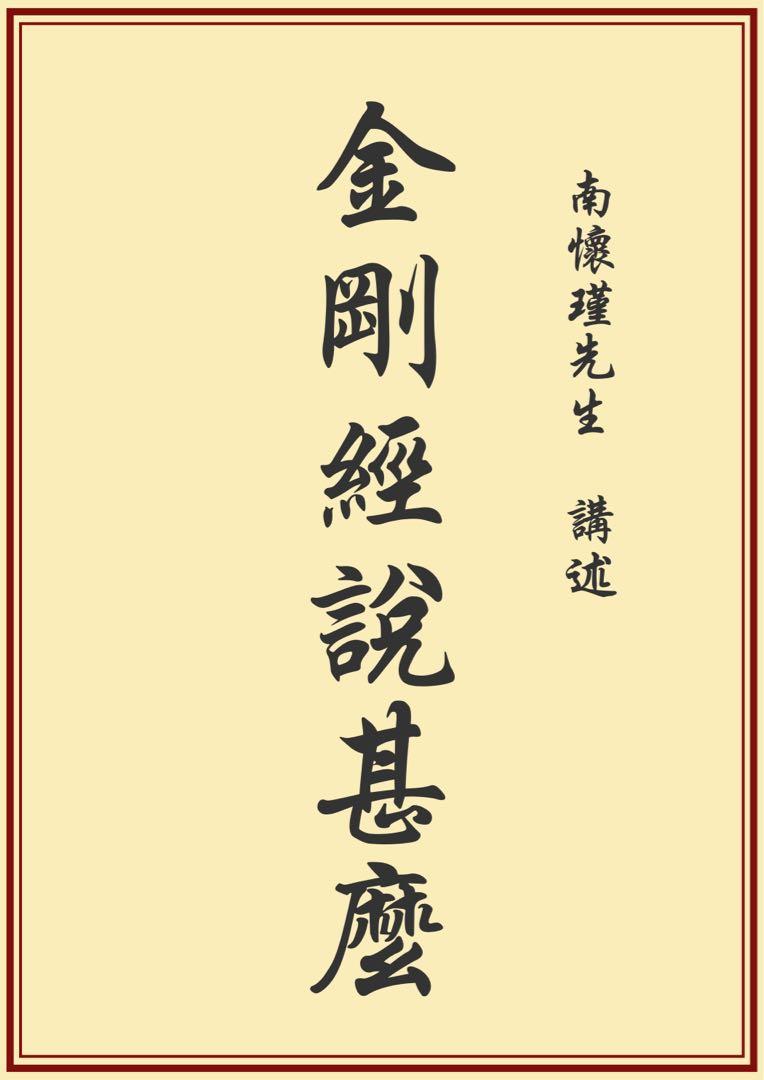 南懷瑾先生 講述
金剛經說甚麼